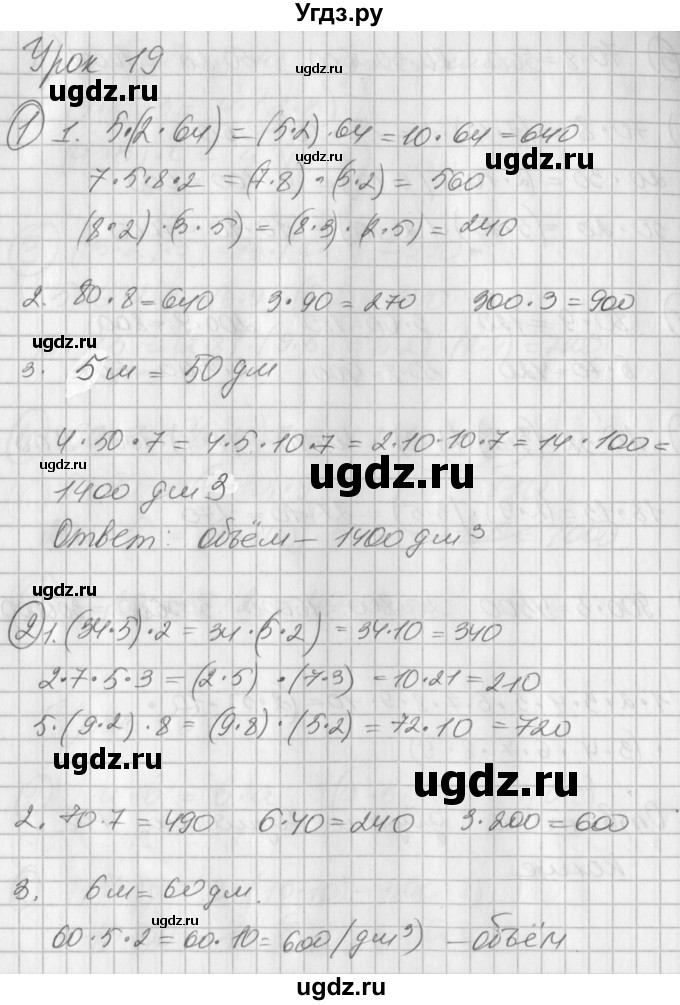 Угдз.ру
Урок 19
ugdz.ru ugdz.ru
① 1. 5·(2·64) = (5·2)·64 = 10·64 = 640
ugdz.ru
7·5·8·2 = (7·8)·(5·2) = 560
(8·2)·(3·5) = (8·3)·(2·5) = 240
ugdz.ru
2. 80·8 = 640 3·90 = 270 300·3 = 900
ugdz.ru
3. 5м = 50 дм
ugdz.ru
4·50·7 = 4·5·10·7 = 2·10·10·7 = 14·100 =
ugdz.ru
1400 дм 3
ugdz.ru
Ответ: объём – 1400 дм ³
ugdz.ru
② 1. (34·5)·2 = 34·(5·2) = 34·10 = 340
ugdz.ru
2·7·5·3 = (2·5)·(7·3) = 10·21 = 210
5·(9·2)·8 = (9·8)·(5·2) = 72·10 = 720
ugdz.ru
ugdz.ru
2. 70·7 = 490 6·40 = 240 3·200 = 600
3. 6м = 60 дм.
ugdz.ru
60·5·2 = 60·10 = 600 (дм³) – объём
ugdz.ru
ugdz.ru